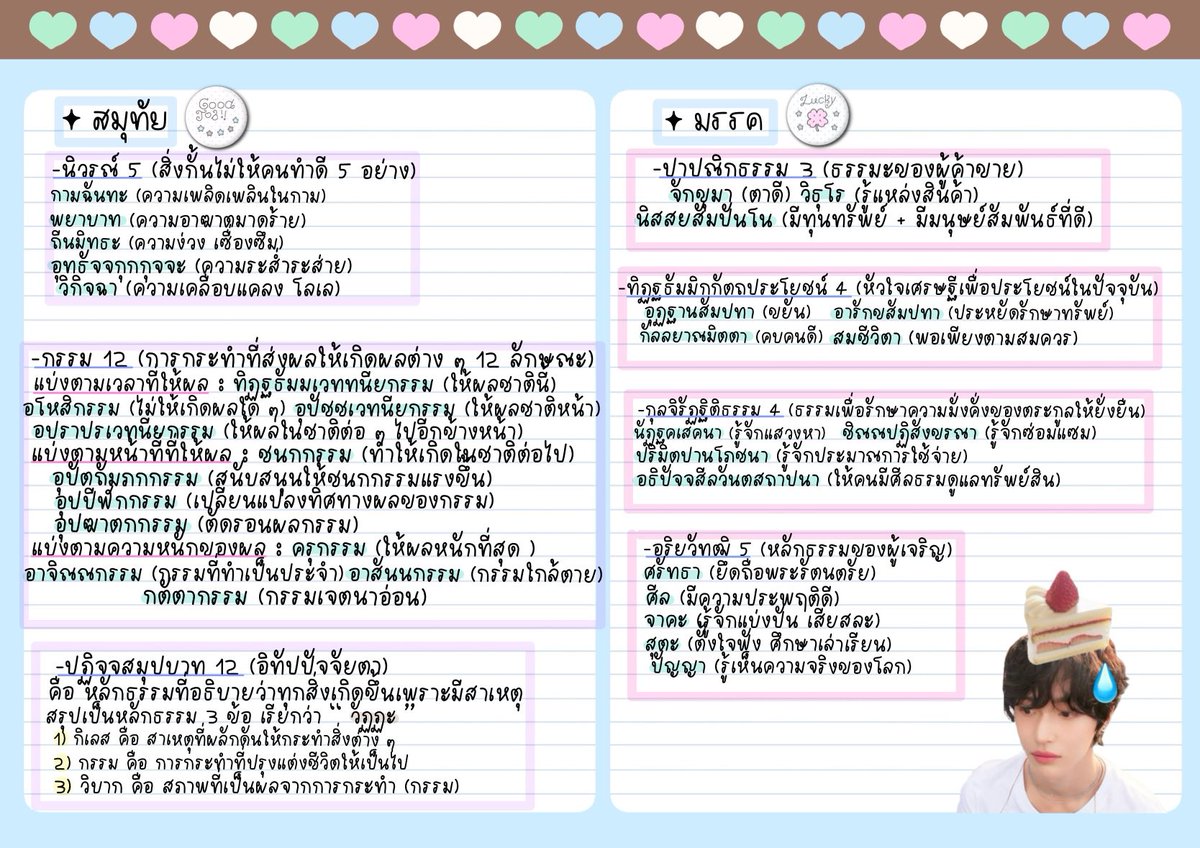 ✦ สมุทัย
Good
Job!!
-นิวรณ์ 5 (สิ่งกั้นไม่ให้คนทำดี 5 อย่าง)
กามฉันทะ (ความเพลิดเพลินในกาม)
พยาบาท (ความอาฆาตมาดร้าย)
ถีนมิทธะ (ความง่วง เซื่องซึม)
อุทธัจจกุกกุจจะ (ความระส่ำระส่าย)
วิกิจฉา (ความเคลือบแคลง โลเล)
-กรรม 12 (การกระทำที่ส่งผลให้เกิดผลต่าง ๆ 12 ลักษณะ)
แบ่งตามเวลาที่ให้ผล : ทิฏฐธัมมเวททนียกรรม (ให้ผลชาตินี้)
อโหสิกรรม (ไม่ให้เกิดผลใด ๆ) อุปัชชเวทนียกรรม (ให้ผลชาติหน้า)
อปราปรเวทนียกรรม (ให้ผลในชาติต่อ ๆ ไปอีกข้างหน้า)
แบ่งตามหน้าที่ที่ให้ผล : ชนกกรรม (ทำให้เกิดในชาติต่อไป)
อุปัตถัมภกกรรม (สนับสนุนให้ชนกกรรมแรงขึ้น)
อุปปีฬกกรรม (เปลี่ยนแปลงทิศทางผลของกรรม)
อุปฆาตกกรรม (ตัดรอนผลกรรม)
แบ่งตามความหนักของผล : ครุกรรม (ให้ผลหนักที่สุด )
อาจิณณกรรม (กรรมที่ทำเป็นประจำ) อาสันนกรรม (กรรมใกล้ตาย)
กตัตากรรม (กรรมเจตนาอ่อน)
-ปฏิจจสมุปบาท 12 (อิทัปปัจจัยตา)
คือ หลักธรรมที่อธิบายว่าทุกสิ่งเกิดขึ้นเพราะมีสาเหตุ
สรุปเป็นหลักธรรม 3 ข้อ เรียกว่า “ วัฏฏะ ”
1) กิเลส คือ สาเหตุที่ผลักดันให้กระทำสิ่งต่างๆ ๆ
2) กรรม คือ การกระทำที่ปรุงแต่งชีวิตให้เป็นไป
3) วิบาก คือ สภาพที่เป็นผลจากการกระทำ (กรรม)
✦ มรรค
Lucky
-ปาปณิกธรรม 3 (ธรรมะของผู้ค้าขาย)
จักขุมา (ตาดี) วิธุโร (รู้แหล่งสินค้า)
นิสสยสัมปันโน (มีทุนทรัพย์ + มีมนุษย์สัมพันธ์ที่ดี)
-ทิฏฐธัมมิกกัตถประโยชน์ 4 (หัวใจเศรษฐีเพื่อประโยชน์ในปัจจุบัน)
อุฏฐานสัมปทา (ขยัน) อารักขสัมปทา (ประหยัดรักษาทรัพย์)
กัลลยาณมิตตา (คบคนดี) สมชีวิตา (พอเพียงตามสมควร)
-กุลจิรัฏฐิติธรรม 4 (ธรรมเพื่อรักษาความมั่งคั่งของตระกูลให้ยั่งยืน)
นัฏฐคเสคนา (รู้จักแสวงหา) ชิณณปฏิสังขรณา (รู้จักซ่อมแซม)
ปริมิตปานโภชนา (รู้จักประมาณการใช้จ่าย)
อธิปัจจสีลวันตสถาปนา (ให้คนมีศีลธรมดูแลทรัพย์สิน)
-อริยวัฑฒิ 5 (หลักธรรมของผู้เจริญ)
ศรัทธา (ยึดถือพระรัตนตรัย)
ศีล (มีความประพฤติดี)
จาคะ (รู้จักแบ่งปัน เสียสละ)
สุตะ (ตั้งใจฟัง ศึกษาเล่าเรียน)
ปัญญา (รู้เห็นความจริงของโลก)